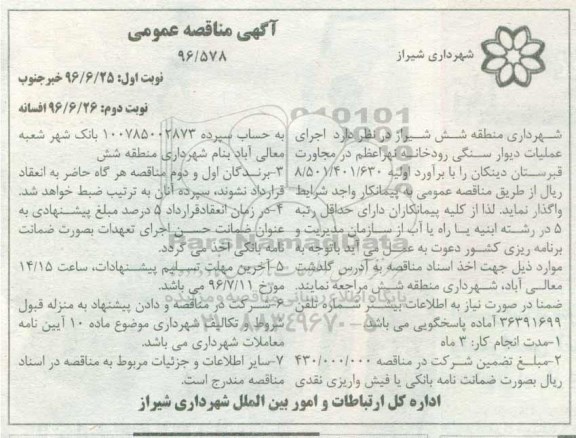 آگهی مناقصه عمومی
۹۶/۵۷۸
شهرداری شیراز
نوبت اول: ۹۶/۶/۲۵ خبرجنوب
نوبت دوم: ۹۶/۶/۲۶ افسانه
شهرداری منطقه شش شیراز در نظر دارد اجرای
عملیات دیوار سنگی رودخانه نهراعظم در مجاورت
قبرستان دینکان را با برآورد اولیه ۸/۵۰۱/۴۰۱/۶۳۰
ریال از طریق مناقصه عمومی به پیمانکار واجد شرایط
واگذار نماید. لذا از کلیه پیمانکاران دارای حداقل رتبه
۵ در رشته ابنیه یا راه یا آب از سازمان مدیریت و
برنامه ریزی کشور دعوت به عمل می آید باتوجه به
موارد ذیل جهت اخذ اسناد مناقصه به آدرس گلدشت
معالی آباد، شهرداری منطقه شش مراجعه نمایند.
ضمنا در صورت نیاز به اطلاعات بیشتر شماره تلفن
۳۶۳۹۱۶۹۹ آماده پاسخگویی می باشد.
۱-مدت انجام کار: ۳ ماه
۲-مبلغ تضمین شرکت در مناقصه ۴۳۰/۰۰۰/۰۰۰
ریال بصورت ضمانت نامه بانکی یا فیش واریزی نقدی
به حساب سپرده ۱۰۰۷۸۵۰۰۲۸۷۳ بانک شهر شعبه
معالی آباد بنام شهرداری منطقه شش
۳-برندگان اول و دوم مناقصه هر گاه حاضر به انعقاد
قرارداد نشوند، سپرده آنان به ترتیب ضبط خواهد شد.
۴-در زمان انعقادقرارداد ۵ درصد مبلغ پیشنهادی به
عنوان ضمانت حسن اجرای تعهدات بصورت ضمانت
نامه بانکی اخذ می گردد.
۵-آخرین مهلت تسلیم پیشنهادات، ساعت ۱۴/۱۵
مورخ ۹۶/۷/۱۱ می باشد.
۶-شرکت در مناقصه و دادن پیشنهاد به منزله قبول
شروط و تکالیف شهرداری موضوع ماده ۱۰ آیین نامه
معاملات شهرداری می باشد.
۷-سایر اطلاعات و جزئیات مربوط به مناقصه در اسناد
مناقصه مندرج است.
اداره کل ارتباطات و امور بین الملل شهرداری شیراز